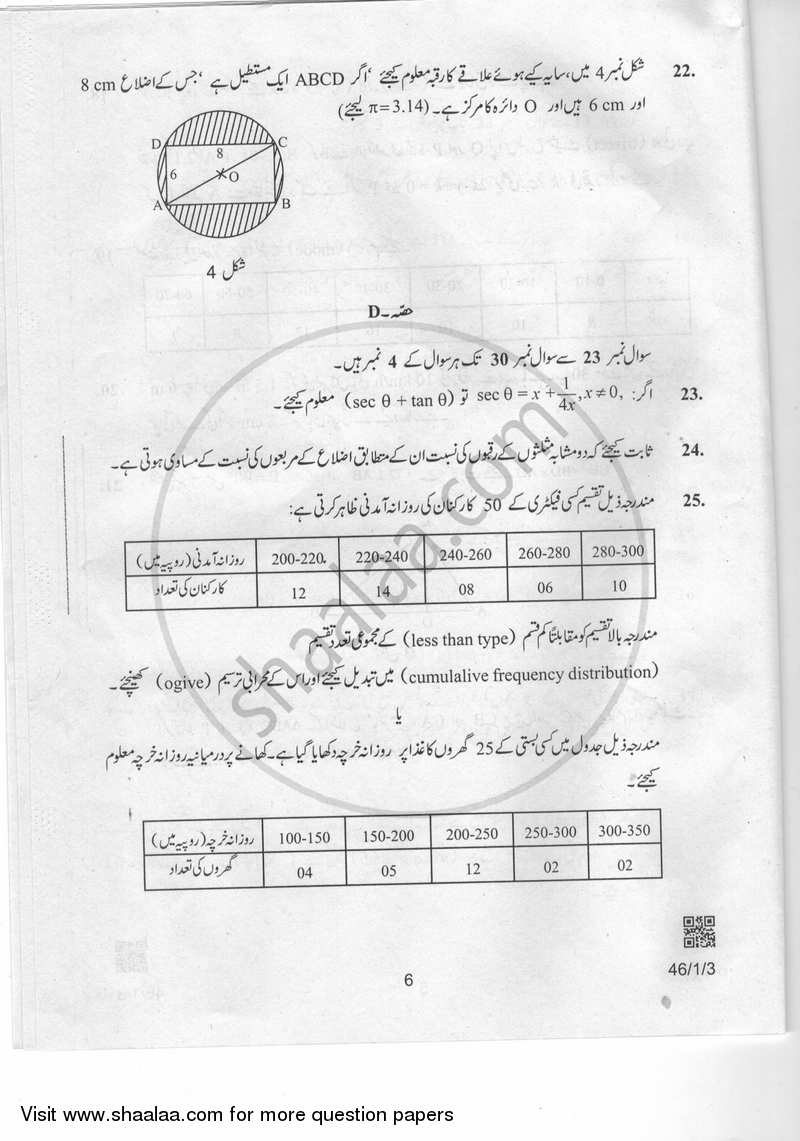 22. شکل نمبر 4 میں، سایہ کیے ہوئے علاقے کا رقبہ معلوم کیجئے، اگر ABCD ایک مستطیل ہے، جس کے اضلاع 8 cm
اور 6 cm ہیں اور O دائرہ کا مرکز ہے۔ (π = 3.14 لیجئے)
D C
8
6
O
A B
شکل 4
حصّہ۔D
سوال نمبر 23 سے سوال نمبر 30 تک ہر سوال کے 4 نمبر ہیں۔
23. اگر: sec θ = x + 1/4x, x ≠ 0, تو (sec θ + tan θ) معلوم کیجئے۔
24. ثابت کیجئے کہ دو مشابہ مثلثوں کے رقبوں کی نسبت ان کے متطابق اضلاع کے مربعوں کی نسبت کے مساوی ہوتی ہے۔
25. مندرجہ ذیل تقسیم کسی فیکٹری کے 50 کارکنان کی روزانہ آمدنی ظاہر کرتی ہے:
روزانہ آمدنی (روپیہ میں) 200-220 220-240 240-260 260-280 280-300
کارکنان کی تعداد 12 14 08 06 10
مندرجہ بالا تقسیم کو مقابلتاً کم قسم (less than type) کے مجموعی تعدد تقسیم
(cumulalive frequency distribution) میں تبدیل کیجئے اور اس کے محرابی ترسیم (ogive) کھینچئے۔
یا
مندرجہ ذیل جدول میں کسی بستی کے 25 گھروں کا غذا پر روزانہ خرچہ دکھایا گیا ہے۔ کھانے پر درمیانیہ روزانہ خرچہ معلوم
کیجئے۔
روزانہ خرچہ (روپیہ میں) 100-150 150-200 200-250 250-300 300-350
گھروں کی تعداد 04 05 12 02 02
46/1/3
6
shaalaa.com
Visit www.shaalaa.com for more question papers